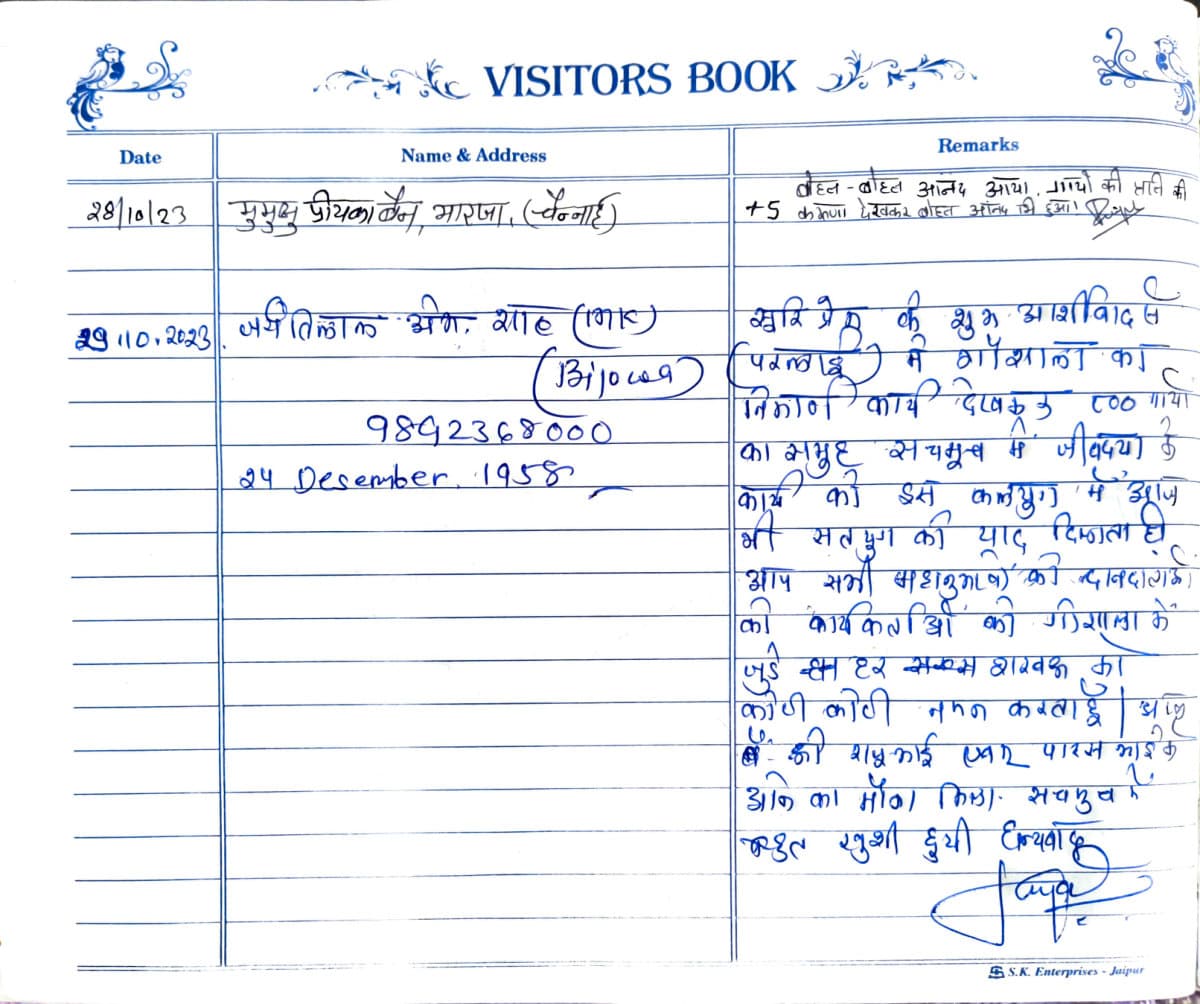 VISITORS BOOK
Date
Name & Address
Remarks
28/10/23
मुमुक्षु प्रीयंका बैन, भारजा, (चैन्नाई)
बोहत - बोहत आनंद आया, गायो की प्रति की
+5 करुणा देखकर बोहत आनंद भि हुआ।
29.10.2023.
जयंतिलाल अेम. शाह (
(Bijowa)
9892368000
24 Desember. 1958
सुरि प्रेम के शुभ आर्शीवाद से
(परलाई) में गौशाला का
निर्माण कार्य देखकर ८०० गायो
का समुह सचमुच में जीवदया के
कार्य को इस कलयुग में आज
भी सतयुग की याद दिलाता है
आप सभी महानुभावों को दानदाताओ
को कार्यकर्ताओं को गौशाला के
जुडे हर शख्स का
कोटी कोटी नमन करता हूँ | आज
की शंभुभाई एवम पारस भाई के
आने का मौका मिला. सचमुच में
बहुत खुशी हुयी धन्यवाद
S.K. Enterprises - Jaipur